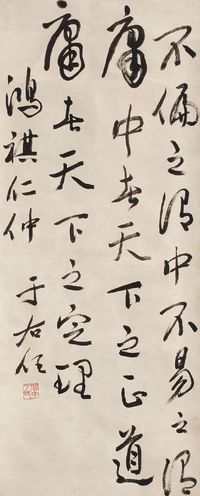 不偏之謂中不易之謂
庸中者天下之正道
庸者天下之定理
鴻祺仁仲
于右任